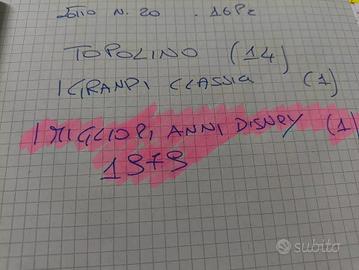 Lotto N. 20 . 16Pz
TOPOLINO (14)
I GRANDI CLASSICI (1)
I MIGLIORI ANNI DISNEY (1)
1979
subito